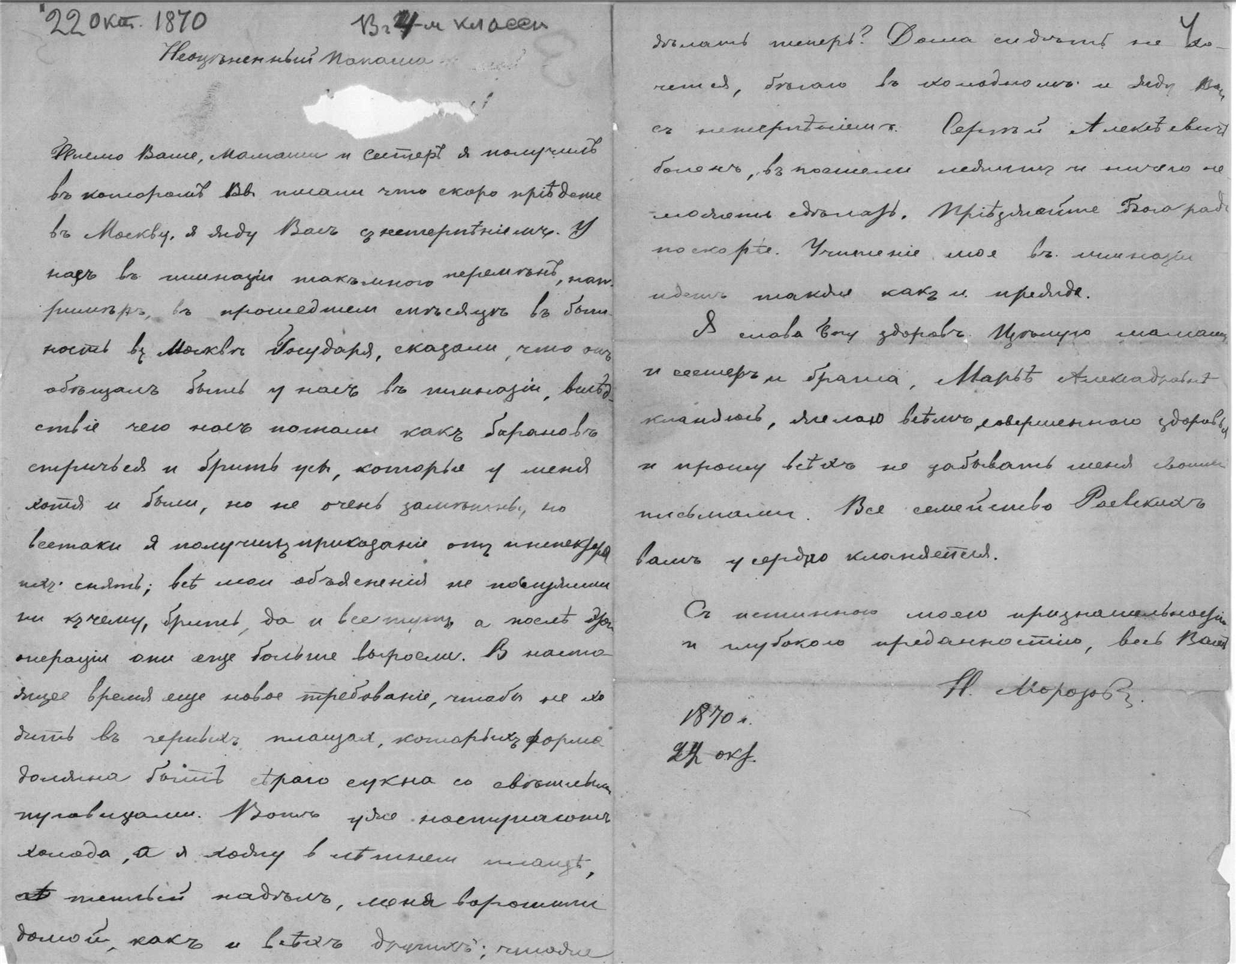 22 Окт. 1870 Въ 4-м классѣ
Неоцѣненный Папаша
Письмо Ваше, мамаши и сестеръ я получилъ
въ которомъ Вы писали что скоро пріѣдете
въ Москву, я жду Васъ съ нетерпѣніемъ. У
насъ въ гимназіи такъ много перемѣнъ, нап-
римѣръ, въ прошедшем мѣсяцѣ въ быт
ность въ Москвѣ Государя, сказали, что онъ
обѣщалъ быть у насъ въ гимназіи, вслѣд-
ствіе чего насъ погнали какъ барановъ
стричься и брить усы, которые у меня
хотя и были, но не очень замѣтны, но
всетаки я получилъ приказаніе отъ инспектора
ихъ снять; всѣ мои объясненія не повели
ни къ чему, брить, да и все тутъ, а послѣ этой
операціи они еще больше выросли. В насто
ящее время еще новое требованіе, чтобы не хо
дить въ черныхъ плащах, которыхъ форма
должна быть сѣраго сукна со свѣтлыми
пуговицами. Вотъ уже наступаютъ
холода, а я хожу в лѣтнем плащѣ,
теплый надѣлъ, меня воротили
домой, какъ и всѣхъ другихъ; чтоже
дѣлать теперь? Дома сидѣть не хо-
чется, бѣгаю въ холодномъ и жду Вас
съ нетерпѣніемъ. Сергѣй Алексѣевичъ
боленъ, въ постели лежитъ и ничего не
можетъ сдѣлать. Пріѣзжайте Бога ради
поскорѣе. Ученіе мое въ гимназіи
идетъ также какъ и прежде.
Я слава Богу здоровъ. Цѣлую мамашу
и сестеръ и брата, Марьѣ Александровнѣ
кланяюсь, желаю всѣмъ совершеннаго здоровья
и прошу всѣхъ не забывать меня своими
письмами. Все семейство Раевскихъ
вамъ усердно кланяется.
Съ истинною моею признательностію
и глубокою преданностію, весь Вашъ
Н. Морозовъ.
1870 г.
22 окт.